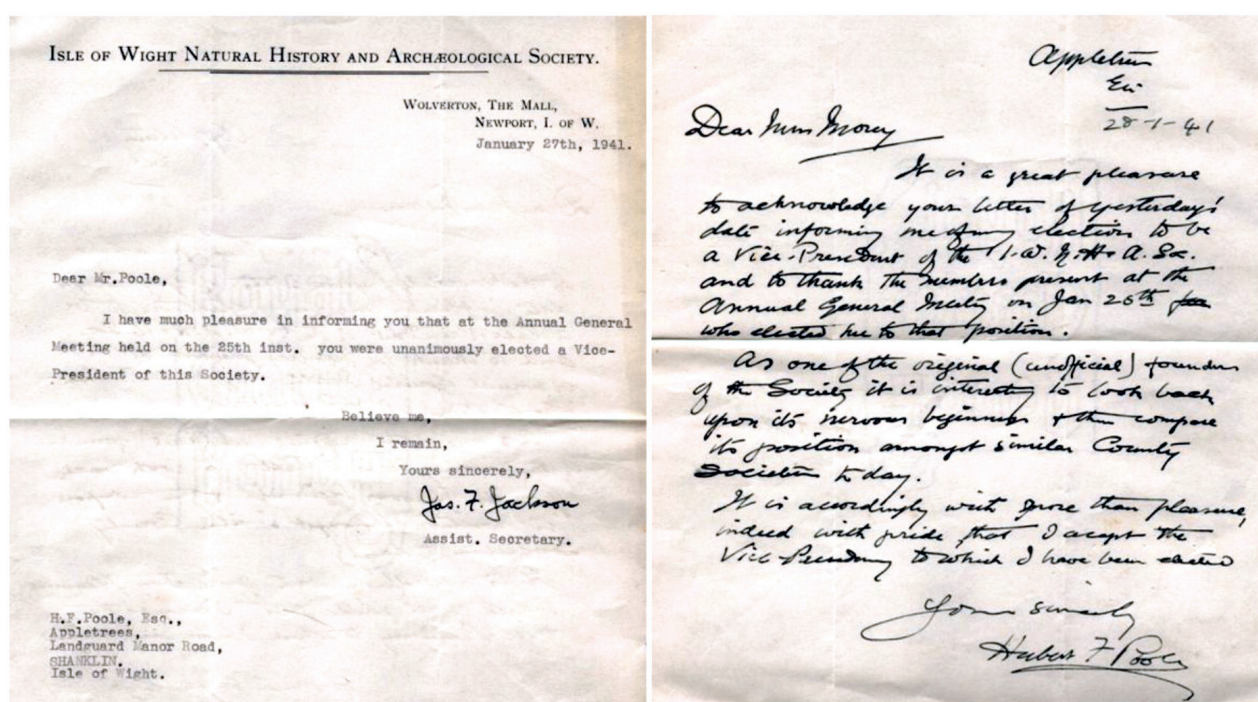 ISLE OF WIGHT NATURAL HISTORY AND ARCHÆOLOGICAL SOCIETY.
WOLVERTON, THE MALL,
NEWPORT, I. OF W.
January 27th, 1941.
Dear Mr.Poole,
I have much pleasure in informing you that at the Annual General
Meeting held on the 25th inst. you were unanimously elected a Vice-
President of this Society.
Believe me,
I remain,
Yours sincerely,
Jas. F. Jackson
Assist. Secretary.
H.F.Poole, Esq.,
Appletrees,
Landguard Manor Road,
SHANKLIN.
Isle of Wight.
Appletrees
28-1-41
Dear Miss Morey
It is a great pleasure
to acknowledge your letter of yesterday's
date informing me of my election to be
a Vice-President of the I.W.N.H. & A. Soc.
and to thank the members present at the
Annual General Meeting on Jan 25th
who elected me to that position.
As one of the original (unofficial) founders
of the Society it is interesting to look back
upon its nervous beginnings & then compare
its position amongst similar County
Societies to day.
It is accordingly with more than pleasure,
indeed with pride, that I accept the
Vice-Presidency to which I have been elected
Yours sincerely
Hubert F Poole